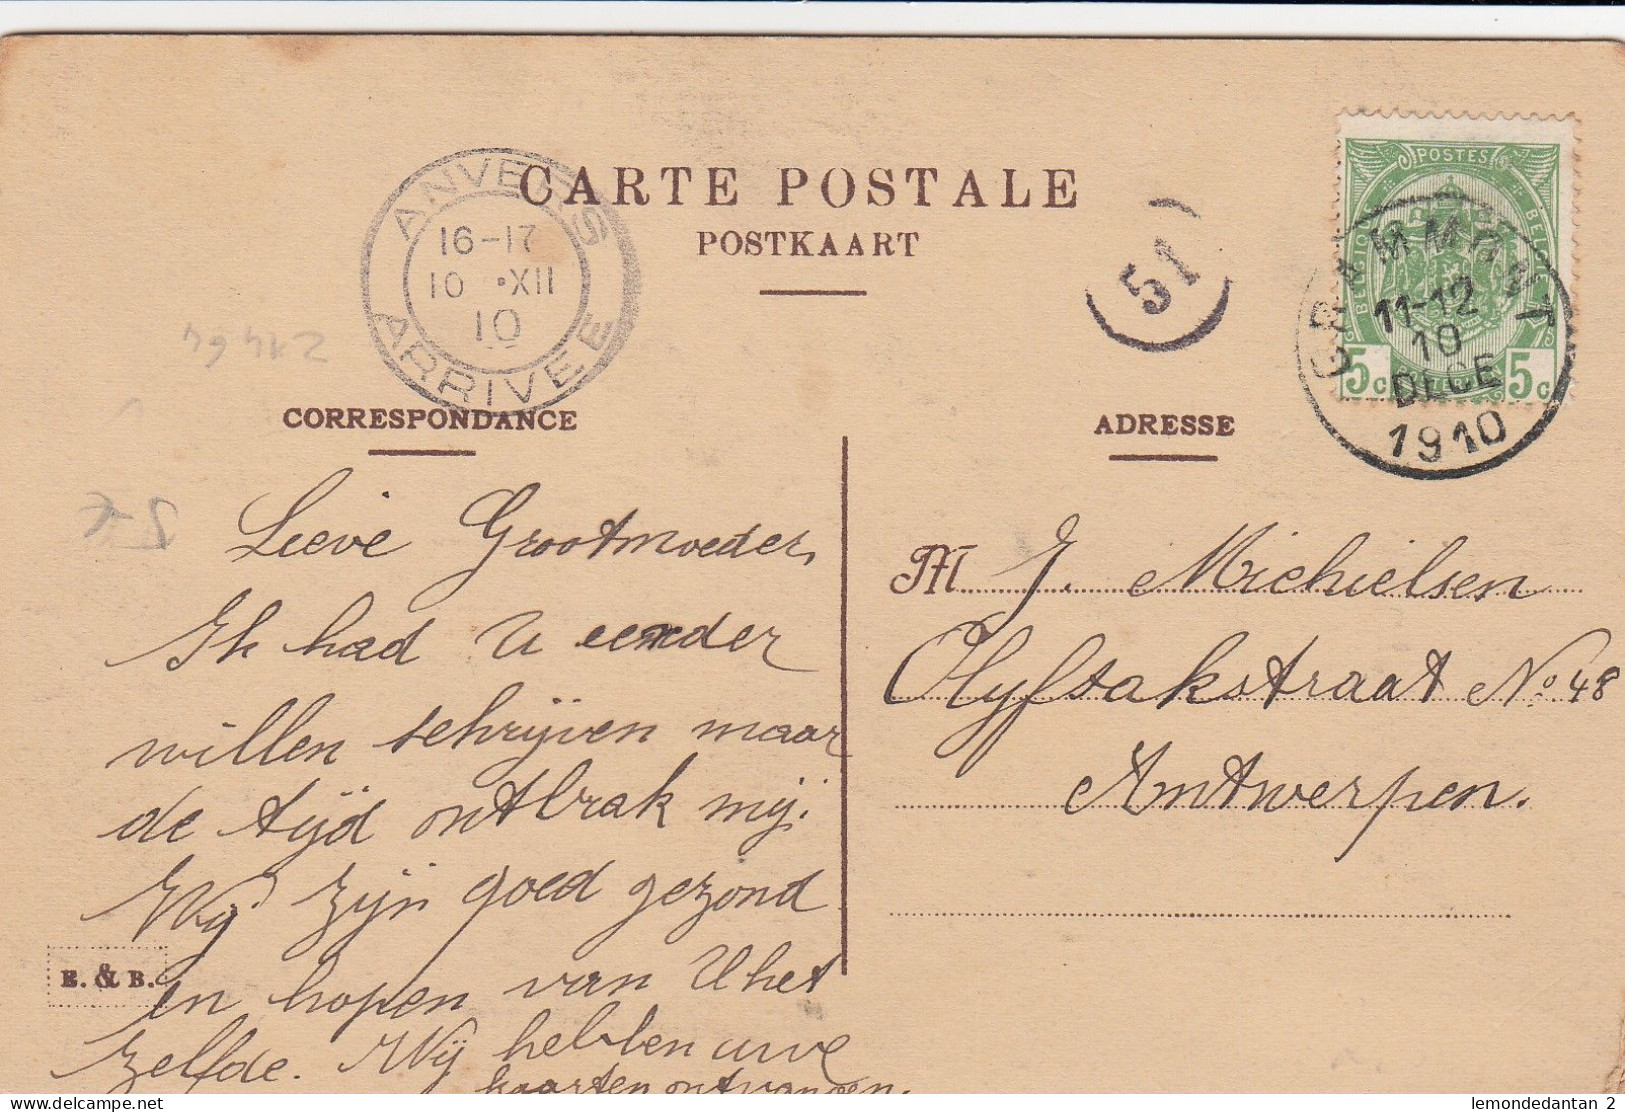 CARTE POSTALE
POSTKAART
ANVERS
16-17
10 •XII
10
ARRIVEE
51
POSTES
BELGIQUE BELGIE
5c 5c
GRAMMONT
11-12
10
DECE
1910
2464
CORRESPONDANCE
ADRESSE
Lieve Grootmoeder,
Ik had U eerder
willen schrijven maar
de tijd ontbrak mij.
Wij zijn goed gezond
en hopen van U het
zelfde. Wij hebben uwe
kaarten ontvangen.
E. & B.
M J. Michielsen
Olyftakstraat No 48
Antwerpen.
lemondedantan_2